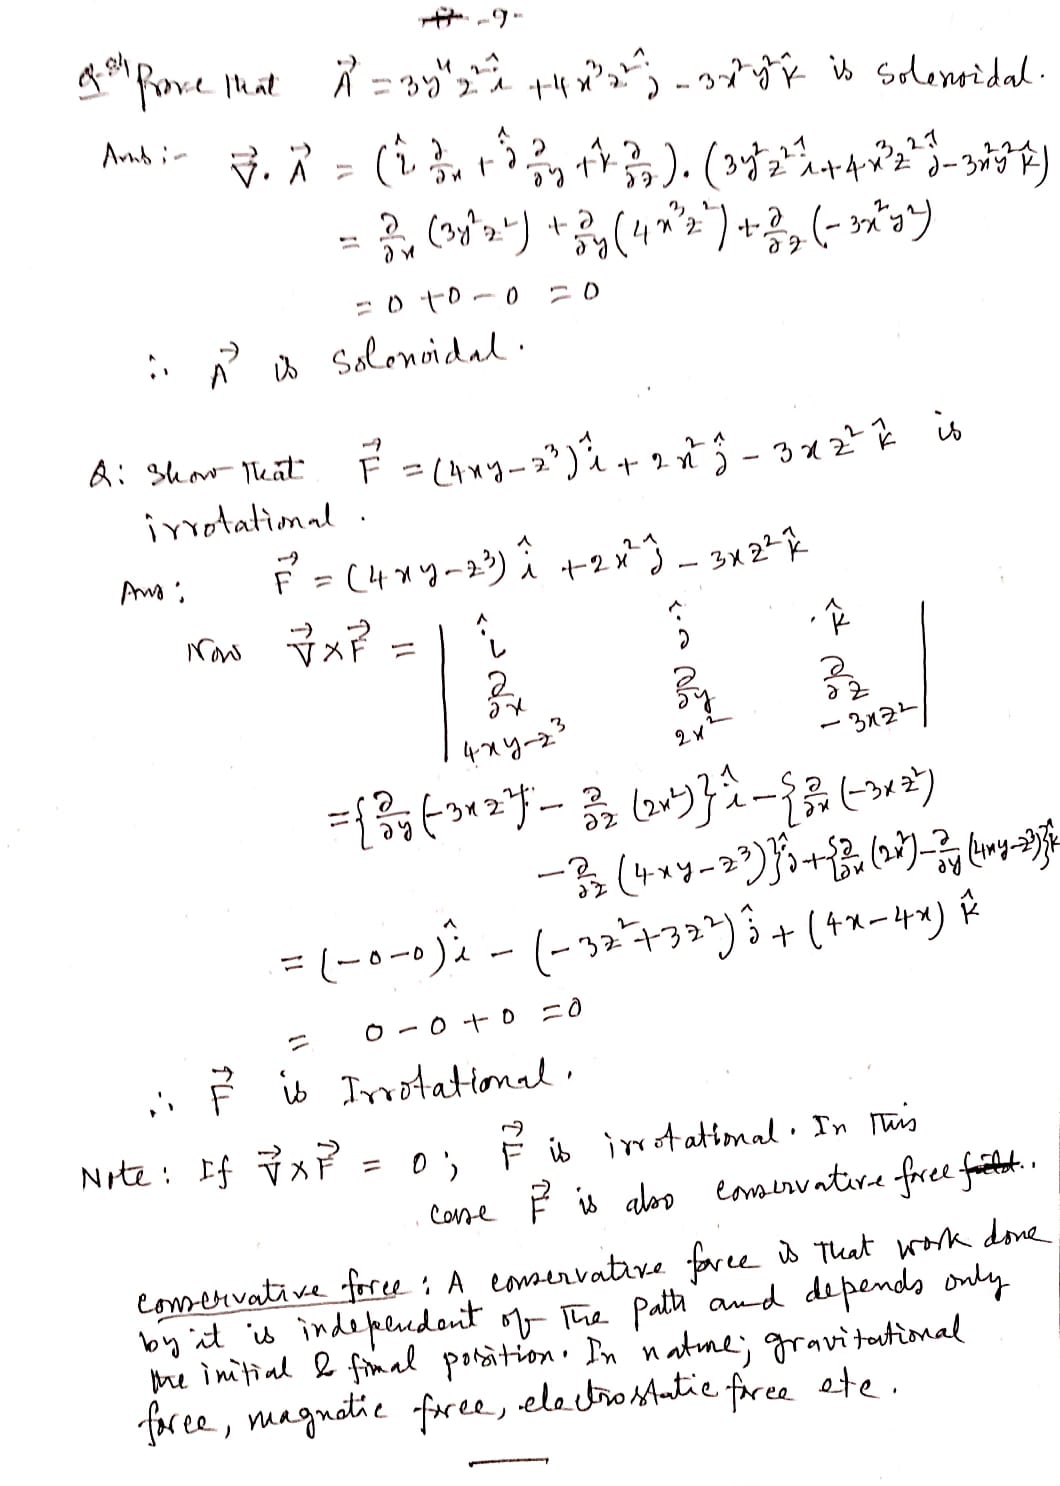 -9-
Prove that A⃗ = 3y⁴z²î + 4x³z²ĵ - 3x²y²k̂ is solenoidal.
Ans:- ∇⃗.A⃗ = (î ∂/∂x + ĵ ∂/∂y + k̂ ∂/∂z).(3y²z²î + 4x³z²ĵ - 3x²y²k̂)
= ∂/∂x (3y²z²) + ∂/∂y (4x³z²) + ∂/∂z (-3x²y²)
= 0 + 0 - 0 = 0
∴ A⃗ is solenoidal.
Q: Show that F⃗ = (4xy - z³)î + 2x²ĵ - 3xz²k̂ is
irrotational.
Ans: F⃗ = (4xy - z³)î + 2x²ĵ - 3xz²k̂
Now ∇⃗×F⃗ = | î ĵ k̂ |
| ∂/∂x ∂/∂y ∂/∂z |
| 4xy-z³ 2x² -3xz² |
= {∂/∂y (-3xz²) - ∂/∂z (2x²)}î - {∂/∂x (-3xz²)
- ∂/∂z (4xy - z³)}ĵ + {∂/∂x (2x²) - ∂/∂y (4xy-z³)}k̂
= (-0-0)î - (-3z²+3z²)ĵ + (4x-4x)k̂
= 0 - 0 + 0 = 0
∴ F⃗ is Irrotational.
Note: If ∇⃗×F⃗ = 0; F⃗ is irrotational. In this
case F⃗ is also conservative force field.
conservative force: A conservative force is that work done
by it is independent of the path and depends only
the initial & final position. In nature; gravitational
force, magnetic force, electrostatic force etc.